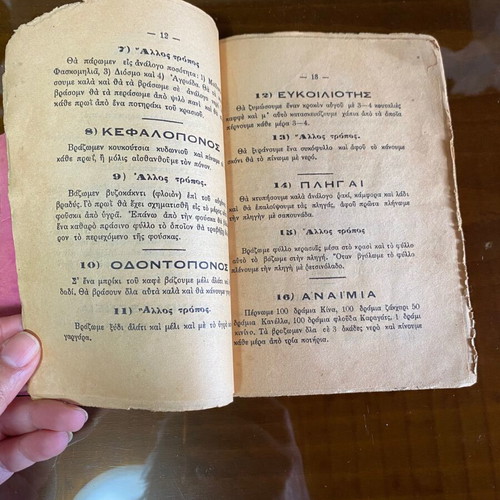 — 12 —
7) Ἄλλος τρόπος
Θὰ πάρωμεν εἰς ἀνάλογο ποσότητα: 1)
Φασκομηλιᾶ, 3) Διόσμο καὶ 4)
μαλα καὶ καλὰ καὶ θὰ τὰ βράσωμε σὲ ἀνάλογο
βρασμὸν θὰ τὰ περάσωμε ἀπὸ ψιλὸ πανὶ
κάθε πρωῒ ἀπὸ ἕνα ποτηράκι τοῦ κρασιοῦ.
8) ΚΕΦΑΛΟΠΟΝΟΣ
Βράζωμεν κουκούτσια κυδωνιοῦ καὶ πίνουμε
κάθε πρωΐ, ἢ μόλις αἰσθανθοῦμε τὸν πόνον.
9) Ἄλλος τρόπος.
Βάζωμεν βυζοκάκντι (φλοιὸν) ἐπὶ τοῦ
βραδύς. Τὸ πρωῒ θὰ ἔχει σχηματισθῆ εἰς τὸ
φούσκα ἀπὸ ὑγρᾶ. Ἐπάνω ἀπὸ τὴν φούσκα θὰ
ἕνα καθαρὸ πράσινο φύλλο τὸ ὁποῖον θὰ
ρον τὸ περιεχόμενο τῆς φούσκας.
10) ΟΔΟΝΤΟΠΟΝΟΣ
Σ' ἕνα μπρίκι τοῦ καφὲ βάζουμε μέλι ἀλάτι καὶ
δοδί, Θὰ βράσουν ὅλα αὐτὰ καλὰ καὶ θὰ κάνουμε
11) Ἄλλος τρόπος.
Βράζωμε ξύδι ἀλάτι καὶ μέλι καὶ μὲ τὸ
γαργάρα.
— 13 —
12) ΕΥΚΟΙΛΙΟΤΗΣ
Θὰ ζυμώσουμε ἕναν κροκὸν αὐγοῦ μὲ 3—4 κουταλιὲς
καφφὲ καὶ μ' αὐτὸ κατασκευάζουμε χάπια ἀπὸ τὰ ὁποῖα
πέρνουμε κάθε μέρα 3—4.
13) Ἄλλος τρόπος.
Θὰ ξιφάνουμε ἕνα συκόφυλλο καὶ ἀφοῦ τὸ κάνουμε
σκόνι θὰ τὸ πίναμε μὲ νερό.
14) ΠΛΗΓΑΙ
Θὰ κτυπήσουμε καλὰ ἀνάλογο ξακί, κάμφορα καὶ λάδι
καὶ θὰ ἐπαλοίψουμε τὰς πληγάς, ἀφοῦ πρῶτα πλύνουμε
τὴν πληγὴν μὲ σαπουνάδα.
15) Ἄλλος τρόπος
Βράζωμε φύλλο κερασιᾶς μέσα στὸ κρασὶ καὶ τὸ φύλλο
αὐτὸ τὸ βάζωμε στὴν πληγή. Ὅταν βγάλωμε τὸ φύλλο
πλύνουμε τὴν πληγὴ μὲ ζεισινόλαδο.
16) ΑΝΑΙΜΙΑ
Πέρνωμε 100 δράμια Κίνα, 100 δράμια ζάχαρι 50
δράμια Κανέλλα, 100 δράμια φλούδα Καραγάτς, 1 δράμι
κινίνο. Τὰ βράζωμεν ὅλα σὲ 3 ὀκάδες νερὸ καὶ πίνουμε
κάθε μέρα ἀπὸ τρία ποτήρια.